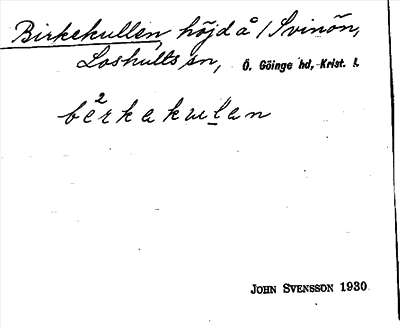 Birkekullen, höjd å /Svinön,
Loshults sn, Ö. Göinge hd, Krist. l.
bè²rkakulan
JOHN SVENSSON 1930